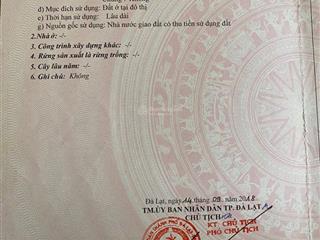 đ) Mục đích sử dụng: Đất ở tại đô thị
e) Thời hạn sử dụng: Lâu dài
g) Nguồn gốc sử dụng: Nhà nước giao đất có thu tiền sử dụng đất
2.Nhà ở: -/-
3. Công trình xây dựng khác: -/-
4. Rừng sản xuất là rừng trồng: -/-
5. Cây lâu năm: -/-
6. Ghi chú: Không
Đà Lạt, ngày 14 tháng 09 năm 2018
TM.ỦY BAN NHÂN DÂN TP. ĐÀ LẠT
CHỦ TỊCH
KT. CHỦ TỊCH
PHÓ CHỦ TỊCH